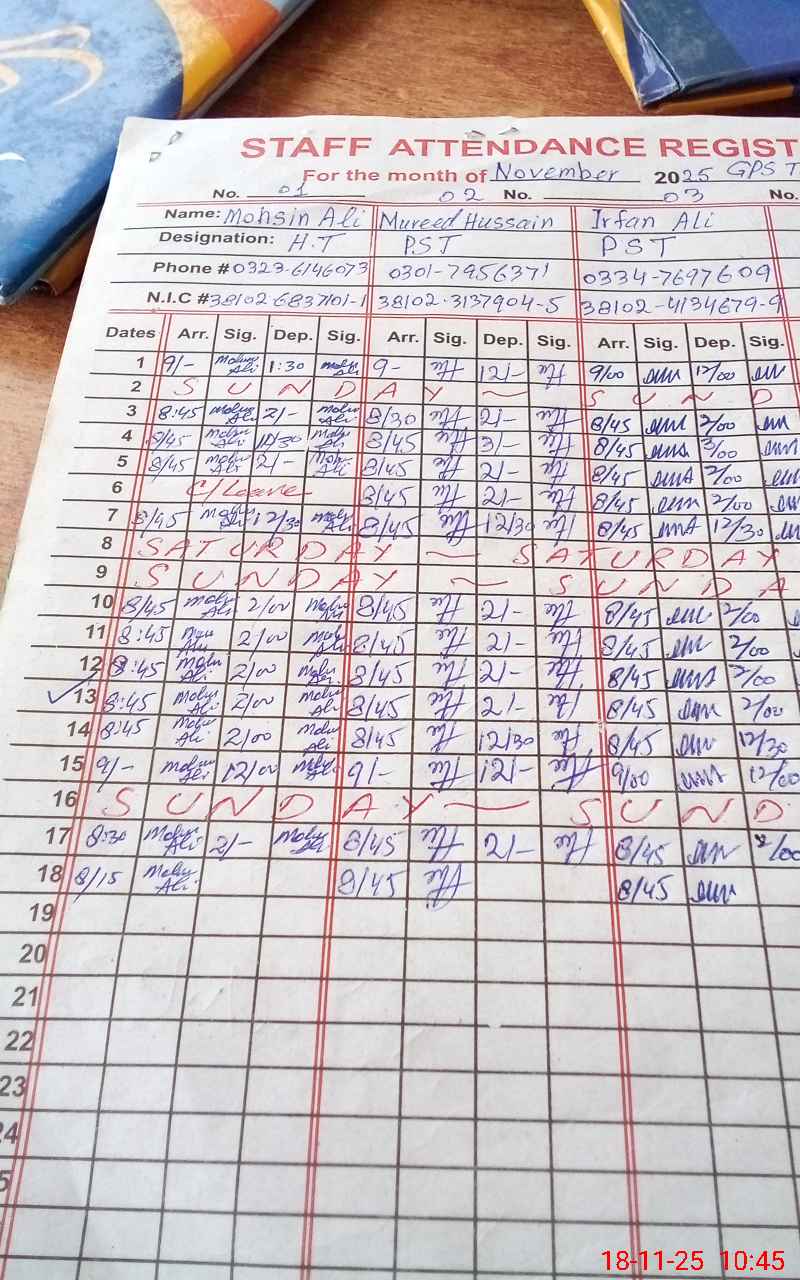 STAFF ATTENDANCE REGIST
For the month of November 2025 GPS T
No. 01 02 No. 03 No.
Name: Mohsin Ali Mureed Hussain Irfan Ali
Designation: H.T PST PST
Phone # 0323-6146073 0301-7956371 0334-7697609
N.I.C # 38102-6837101-1 38102-3137904-5 38102-4134679-9
Dates Arr. Sig. Dep. Sig. Arr. Sig. Dep. Sig. Arr. Sig. Dep. Sig.
1 9/- Mohsin Ali 1:30 Mohsin Ali 9- 12/- 9/00 12/00
2 SUNDAY — SUND
3 8:45 Mohsin Ali 2/- Mohsin Ali 8/30 2/- 8/45 2/00
4 8/45 Mohsin Ali Mohsin Ali 8/45 3/- 8/45 3/00
5 8/45 Mohsin Ali 2/- Mohsin Ali 8/45 2/- 8/45 2/00
6 C/Leave 8/45 2/- 8/45 2/00
7 8/45 Mohsin Ali 12/30 Mohsin Ali 8/45 12/30 8/45 12/30
8 SATURDAY — SATURDAY
9 SUNDAY — SUNDA
10 8/45 Mohsin Ali 2/00 Mohsin Ali 8/45 2/- 8/45 2/00
11 8:45 Mohsin Ali 2/00 Mohsin Ali 8/45 2/- 8/45 2/00
12 8:45 Mohsin Ali 2/00 Mohsin Ali 8/45 2/- 8/45 2/00
13 8:45 Mohsin Ali 2/00 Mohsin Ali 8/45 2/- 8/45 2/00
14 8:45 Mohsin Ali 2/00 Mohsin Ali 8/45 12/30 8/45 12/30
15 9/- Mohsin Ali 12/00 Mohsin Ali 9/- 12/- 9/00 12/00
16 SUNDAY — SUND
17 8:30 Mohsin Ali 2/- Mohsin Ali 8/45 2/- 8/45 2/00
18 8/15 Mohsin Ali 8/45 8/45
19
20
21
22
23
24
5
18-11-25 10:45